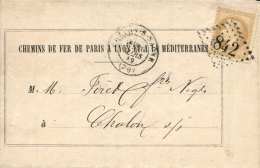 CHEMINS DE FER DE PARIS A LYON ET A LA MÉDITERRANÉE
842
M. M. Féret frs Négts
à
Chalon s/s